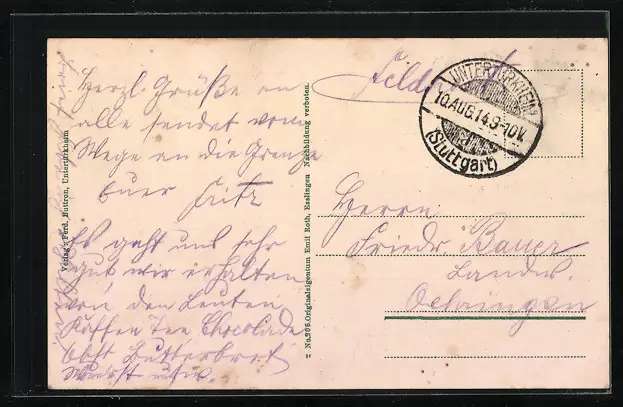 Herzl. Grüße an
alle sendet vom
Wege an die Grenze
Euer Fritz
Es geht uns sehr
gut wir erhalten
von den Leuten
Kaffee Tee Chocolade
Obst Butterbrot
Wurst usw.
Verlag v. Ferd. Buttron, Untertürkheim
Z No. 996. Originaleigentum Emil Roth, Esslingen Nachbildung verboten.
UNTERTÜRKHEIM
10.AUG.14.9-10V.
(Stuttgart)
Herrn
Friedr Bauer
Öehringen